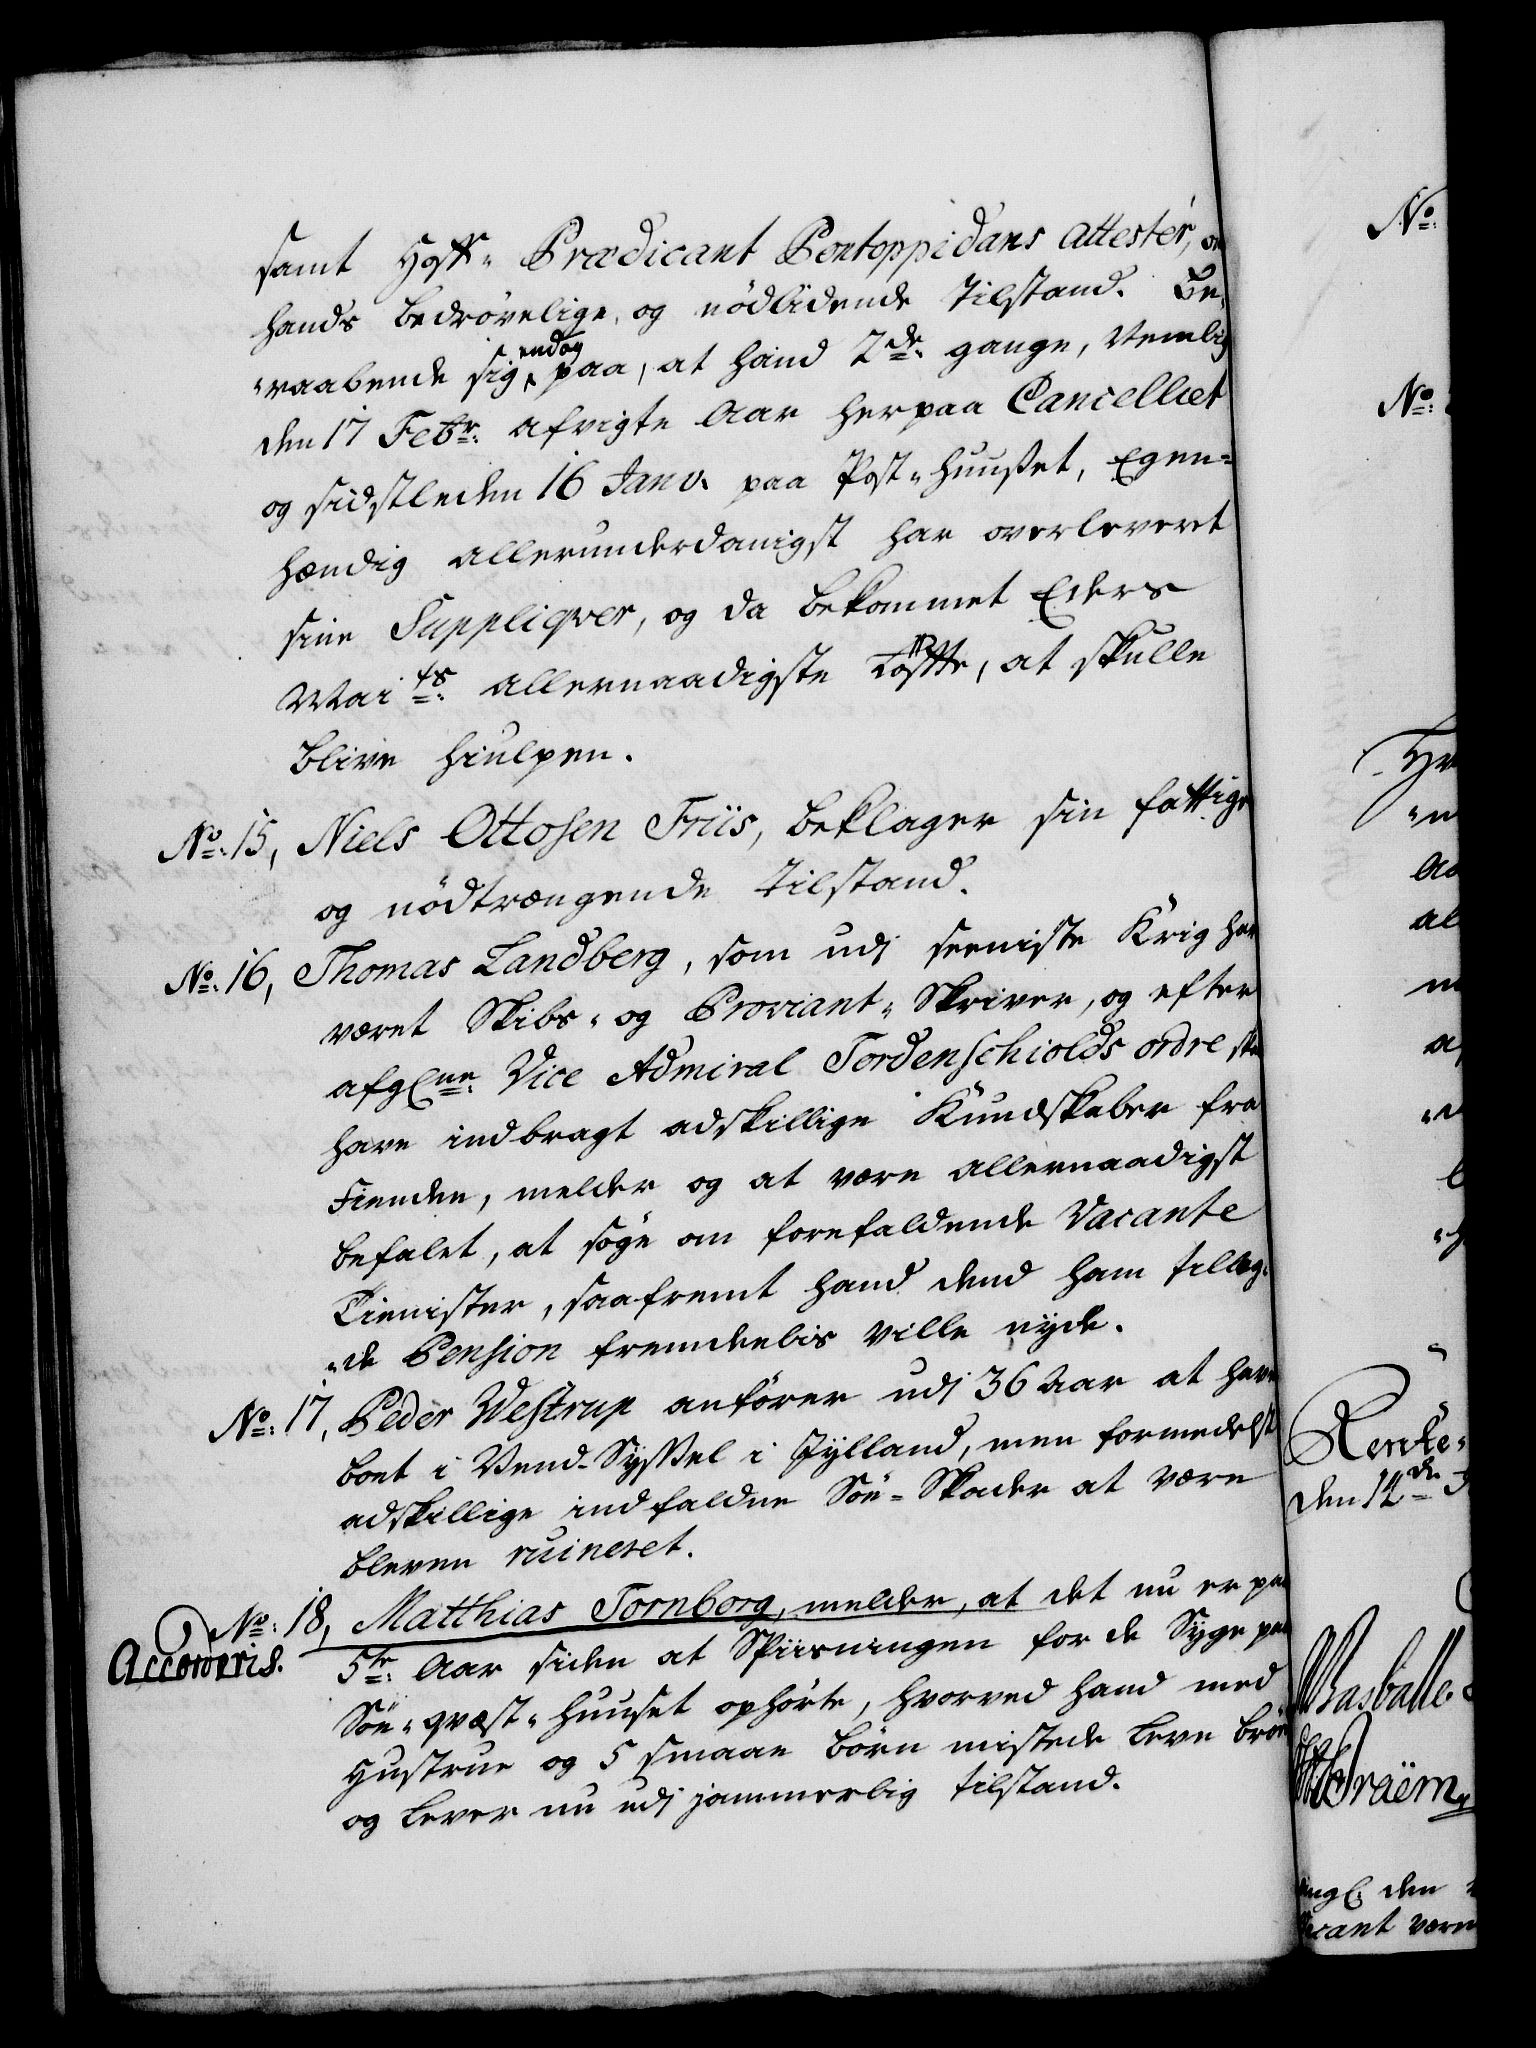 samt Hoff- Prædicant Pontoppidans attester, om
hands bedrøvelige, og nödlidende Tilstand. Be-
-raabende sig endog paa, at hand 2de gange, Nemlig
den 17 Febr: afvigte Aar her paa Cancelliet
og sidstleden 16 Janv. paa Post-Huuset, Egen-
hændig allerunderdanigst har overleveret
sine Suppliqver, og da bekommet Eders
Maits: allernaadigste Löffte, at skulle
blive hiulpen.
No: 15, Niels Ottosen Friis, beklager sin fattige
og nödtrængende Tilstand.
No: 16, Thomas Landberg, som udj seeniste Krig har
været Skibs- og Proviant-Skriver, og efter
afgl. Vice Admiral Tordenschiolds ordre skal
have indbragt adskillige Kundskaber fra
Fienden, melder og at være allernaadigst
befalet, at søge om forefaldende Vacante
Tienister, saafremt hand dend ham tillag-
-de Pension fremdeelis ville nyde.
No: 17, Peder Westrup anfører udj 36 Aar at have
boet i Vend-Syssel i Jylland, men formedelst
adskillige indfaldne Söe-Skader at være
bleven ruineret.
No: 18, Matthias Tornborg, melder, at det nu er paa
Accorderis.
5te Aar siden at Spiisningen for de Syge paa
Söe-qvæst-Huuset ophørte, hvorved hand med
Hustrue og 5 smaae Börn mistede Leve bröd
og Lever nu udj jammerlig Tilstand.
No:
No:
Rente-
den 12de
Wasballe
den
cant være